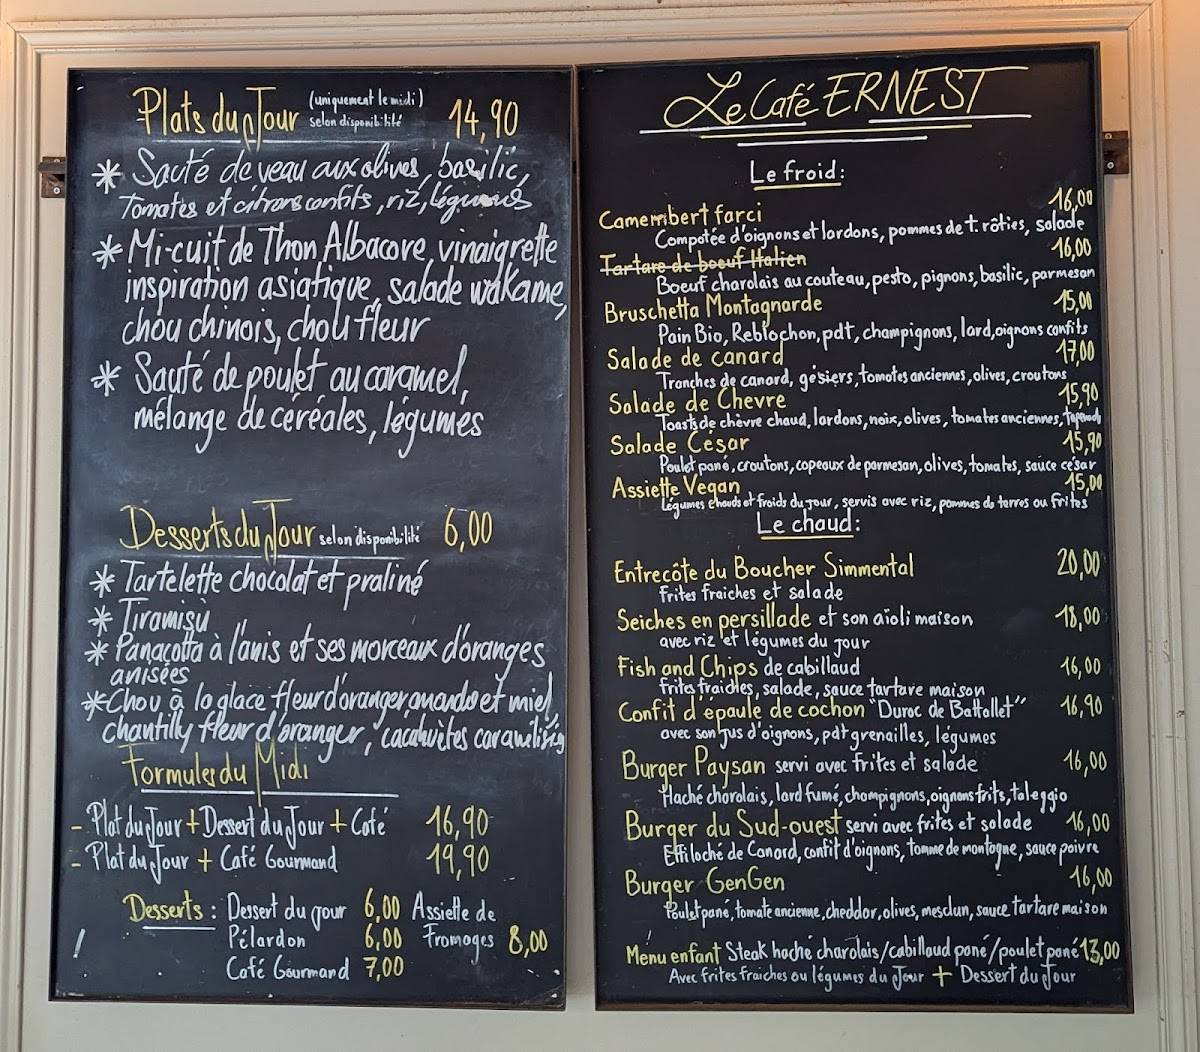 Plats du Jour (uniquement le midi) selon disponibilité 14,90
* Sauté de veau aux olives, basilic,
Tomates et citrons confits, riz, légumes
* Mi-cuit de Thon Albacore, vinaigrette
inspiration asiatique, salade wakame,
chou chinois, chou fleur
* Sauté de poulet au caramel,
mélange de céréales, légumes
Desserts du Jour selon disponibilité 6,00
* Tartelette chocolat et praliné
* Tiramisù
* Panacotta à l'anis et ses morceaux d'oranges
anisées
* Chou à la glace fleur d'oranger, amande et miel
chantilly fleur d'oranger, cacahuètes caramélisées
Formules du Midi
- Plat du Jour + Dessert du Jour + Café 16,90
- Plat du Jour + Café Gourmand 19,90
Desserts : Dessert du jour 6,00 Assiette de
Pélardon 6,00 Fromages 8,00
Café Gourmand 7,00
Le Café ERNEST
Le froid:
Camembert farci 16,00
Compotée d'oignons et lardons, pommes de t. rôties, salade
Tartare de boeuf Italien 16,00
Boeuf charolais au couteau, pesto, pignons, basilic, parmesan
Bruschetta Montagnarde 15,00
Pain Bio, Reblochon, pdt, champignons, lard, oignons confits
Salade de canard 17,00
Tranches de canard, gésiers, tomates anciennes, olives, croutons
Salade de Chevre 15,90
Toasts de chèvre chaud, lardons, noix, olives, tomates anciennes, Tapenade
Salade César 15,90
Poulet pané, croutons, copeaux de parmesan, olives, tomates, sauce césar
Assiette Vegan 15,00
Légumes chauds et froids du Jour, servis avec riz, pommes de terres ou frites
Le chaud:
Entrecôte du Boucher Simmental 20,00
Frites fraiches et salade
Seiches en persillade et son aïoli maison 18,00
avec riz et légumes du jour
Fish and Chips de cabillaud 16,00
frites fraiches, salade, sauce tartare maison
Confit d'épaule de cochon "Duroc de Batallet" 16,90
avec son jus d'oignons, pdt grenailles, légumes
Burger Paysan servi avec frites et salade 16,00
Haché charolais, lard fumé, champignons, oignons frits, taleggio
Burger du Sud-ouest servi avec frites et salade 16,00
Effiloché de Canard, confit d'oignons, tomme de montagne, sauce poivre
Burger GenGen 16,00
Poulet pané, tomate ancienne, cheddar, olives, mesclun, sauce tartare maison
Menu enfant Steak haché charolais/cabillaud pané/poulet pané 13,00
Avec frites fraiches ou légumes du Jour + Dessert du Jour